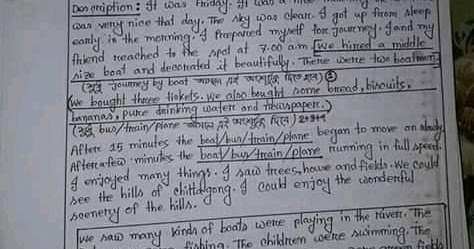 Description: It was Friday. It was a nice
was very nice that day. The sky was clear. I got up from sleep
early in the morning. I prepared myself for journey. I and my
friend reached to the spot at 7.00 am. We hired a middle
size boat and decorated it beautifully. There were two boatmen.
journey by boat
We bought three tickets. We also bought some bread, biscuits,
bananas, pure drinking water and newspaper.
bus/train/plane
After 15 minutes the boat/bus/train/plane began to move on slowly
After a few minutes the boat/bus/train/plane running in full speed.
I enjoyed many things. I saw trees, house and fields. We could
see the hills of chittagong. I could enjoy the wonderful
scenery of the hills.
We saw many kinds of boats were playing in the river. The
fishing. The children were swimming. The
green fields